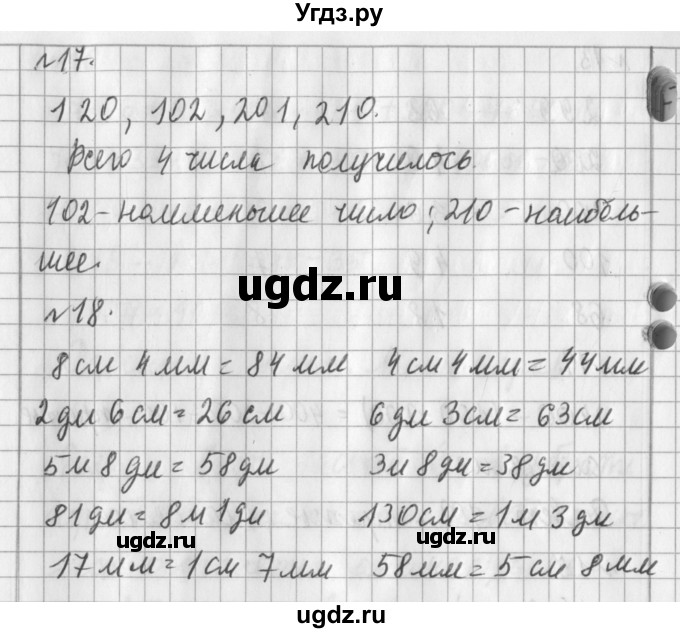 Угдз.ру
№17.
120, 102, 201, 210.
Всего 4 числа получилось.
102-наименьшее число; 210-наиболь-
шее.
ugdz.ru
№18.
8 см 4 мм = 84 мм 4 см 4 мм = 44 мм
2 дм 6 см = 26 см 6 дм 3 см = 63 см
5 м 8 дм = 58 дм 3 м 8 дм = 38 дм
81 дм = 8 м 1 дм 130 см = 1 м 3 дм
ugdz.ru ugdz.ru
17 мм = 1 см 7 мм 58 мм = 5 см 8 мм
ugdz.ru